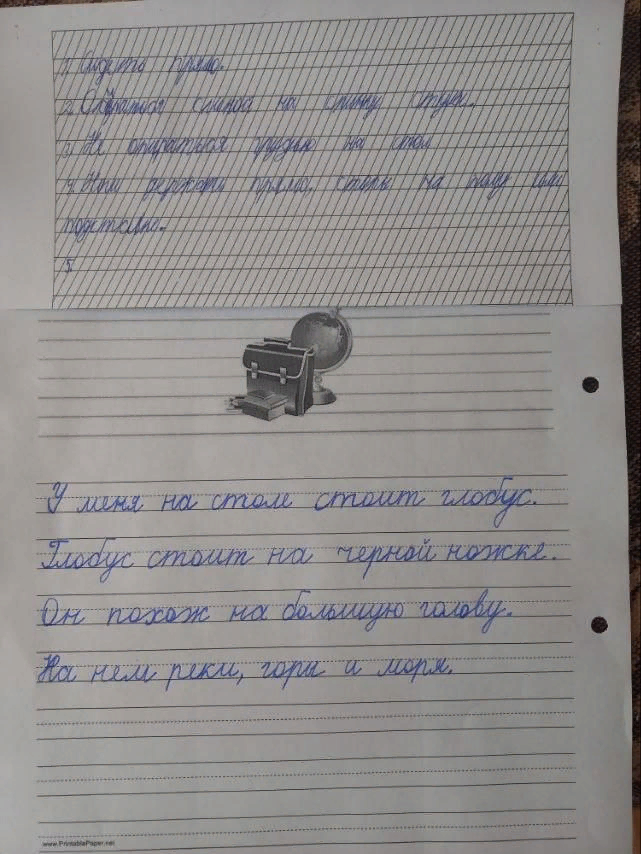 1. Сидеть прямо.
2. Опираться спиной на спинку стула.
3. Не опираться грудью на стол
4. Ноги держать прямо, стопы на полу или
подставке.
5.
У меня на столе стоит глобус.
Глобус стоит на черной ножке.
Он похож на большую голову.
На нем реки, горы и моря.
www.PrintablePaper.net